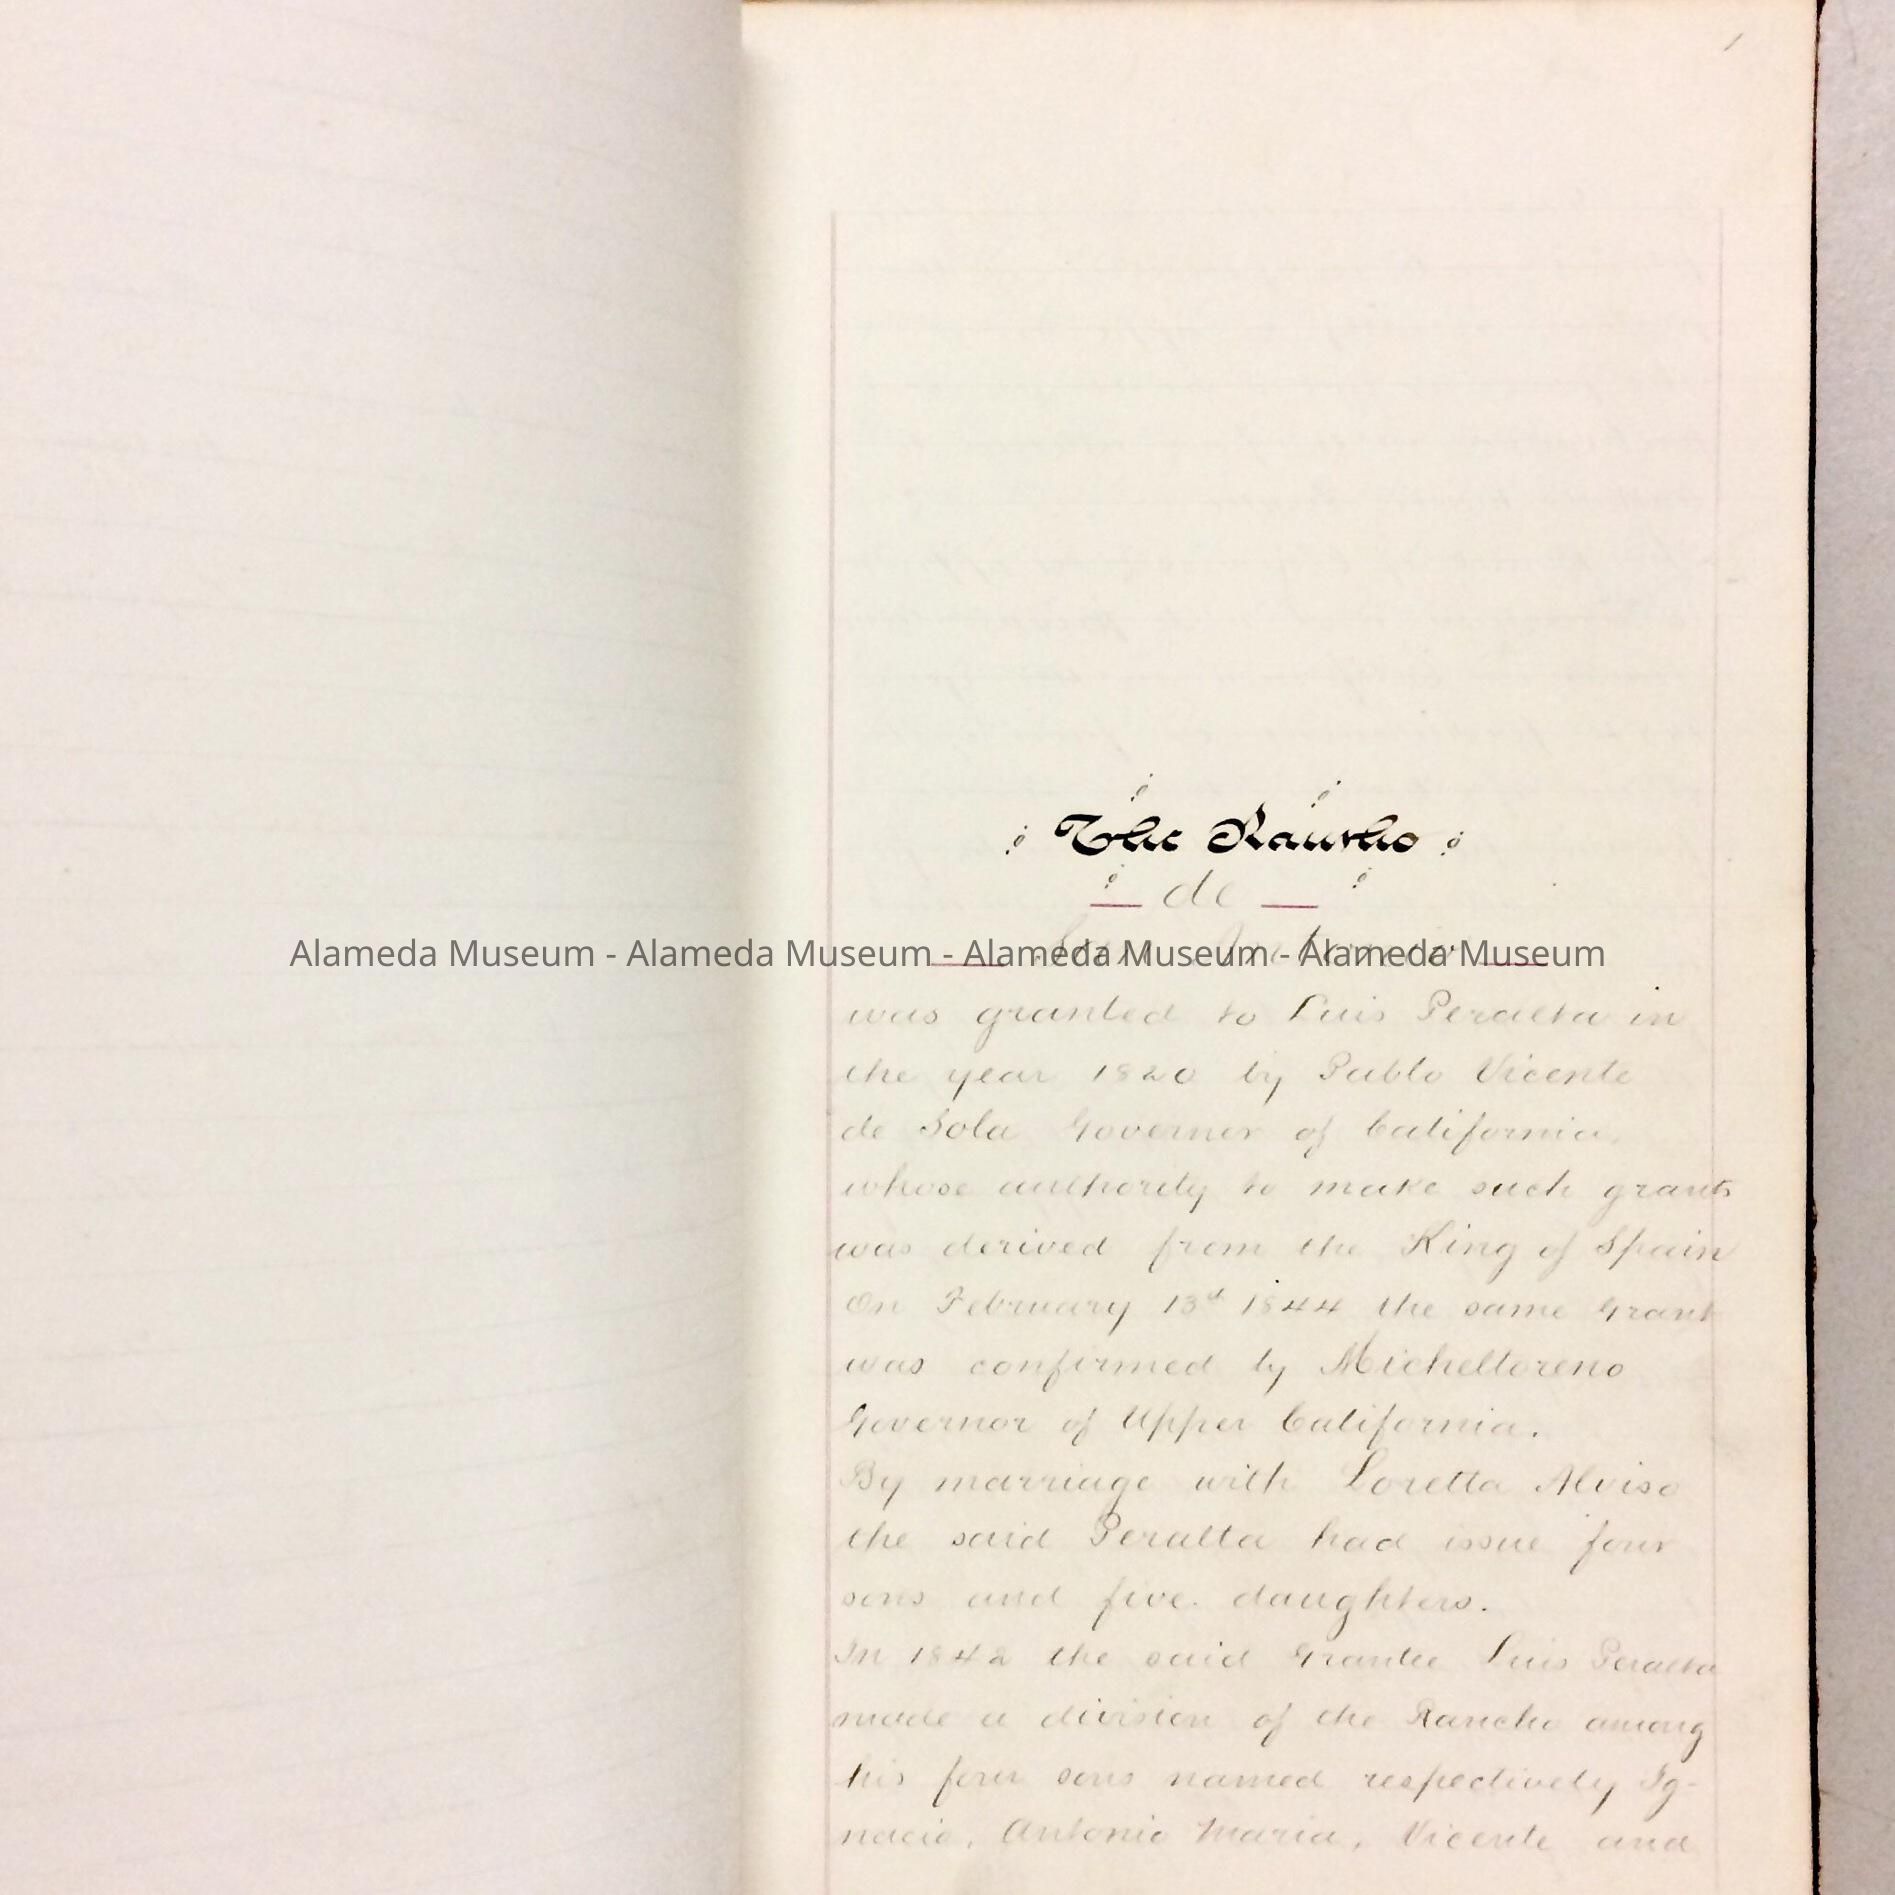 1
The Rancho
de
San Antonio
Alameda Museum - Alameda Museum - Alameda Museum - Alameda Museum
was granted to Luis Peralta in
the year 1820 by Pablo Vicente
de Sola Governor of California,
whose authority to make such grants
was derived from the King of Spain
On February 13d 1844 the same Grant
was confirmed by Micheltoreno
Governor of Upper California.
By marriage with Loretta Alviso
the said Peralta had issue four
sons and five daughters.
In 1842 the said Grantee Luis Peralta
made a division of the Rancho among
his four sons named respectively Ig-
nacio, Antonio Maria, Vicente and